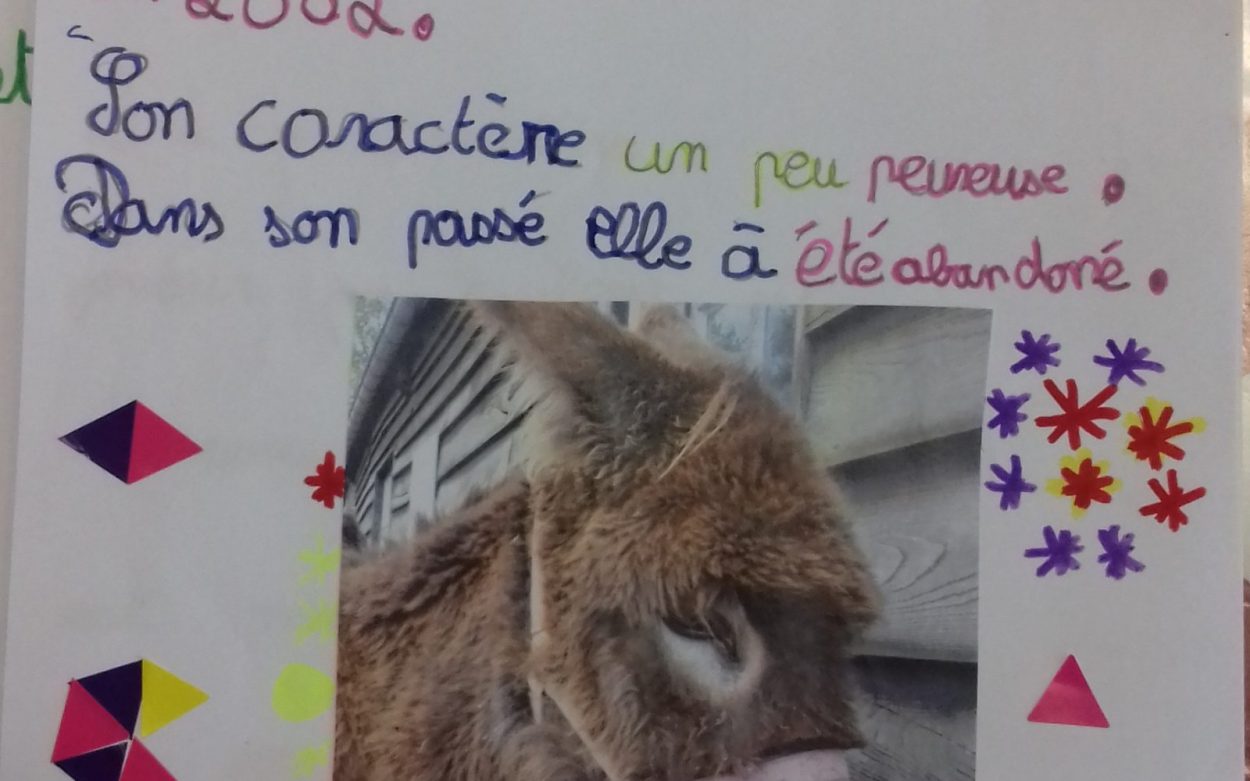 2002.
et
Son caractère un peu peureuse.
Dans son passé elle à été abandoné.